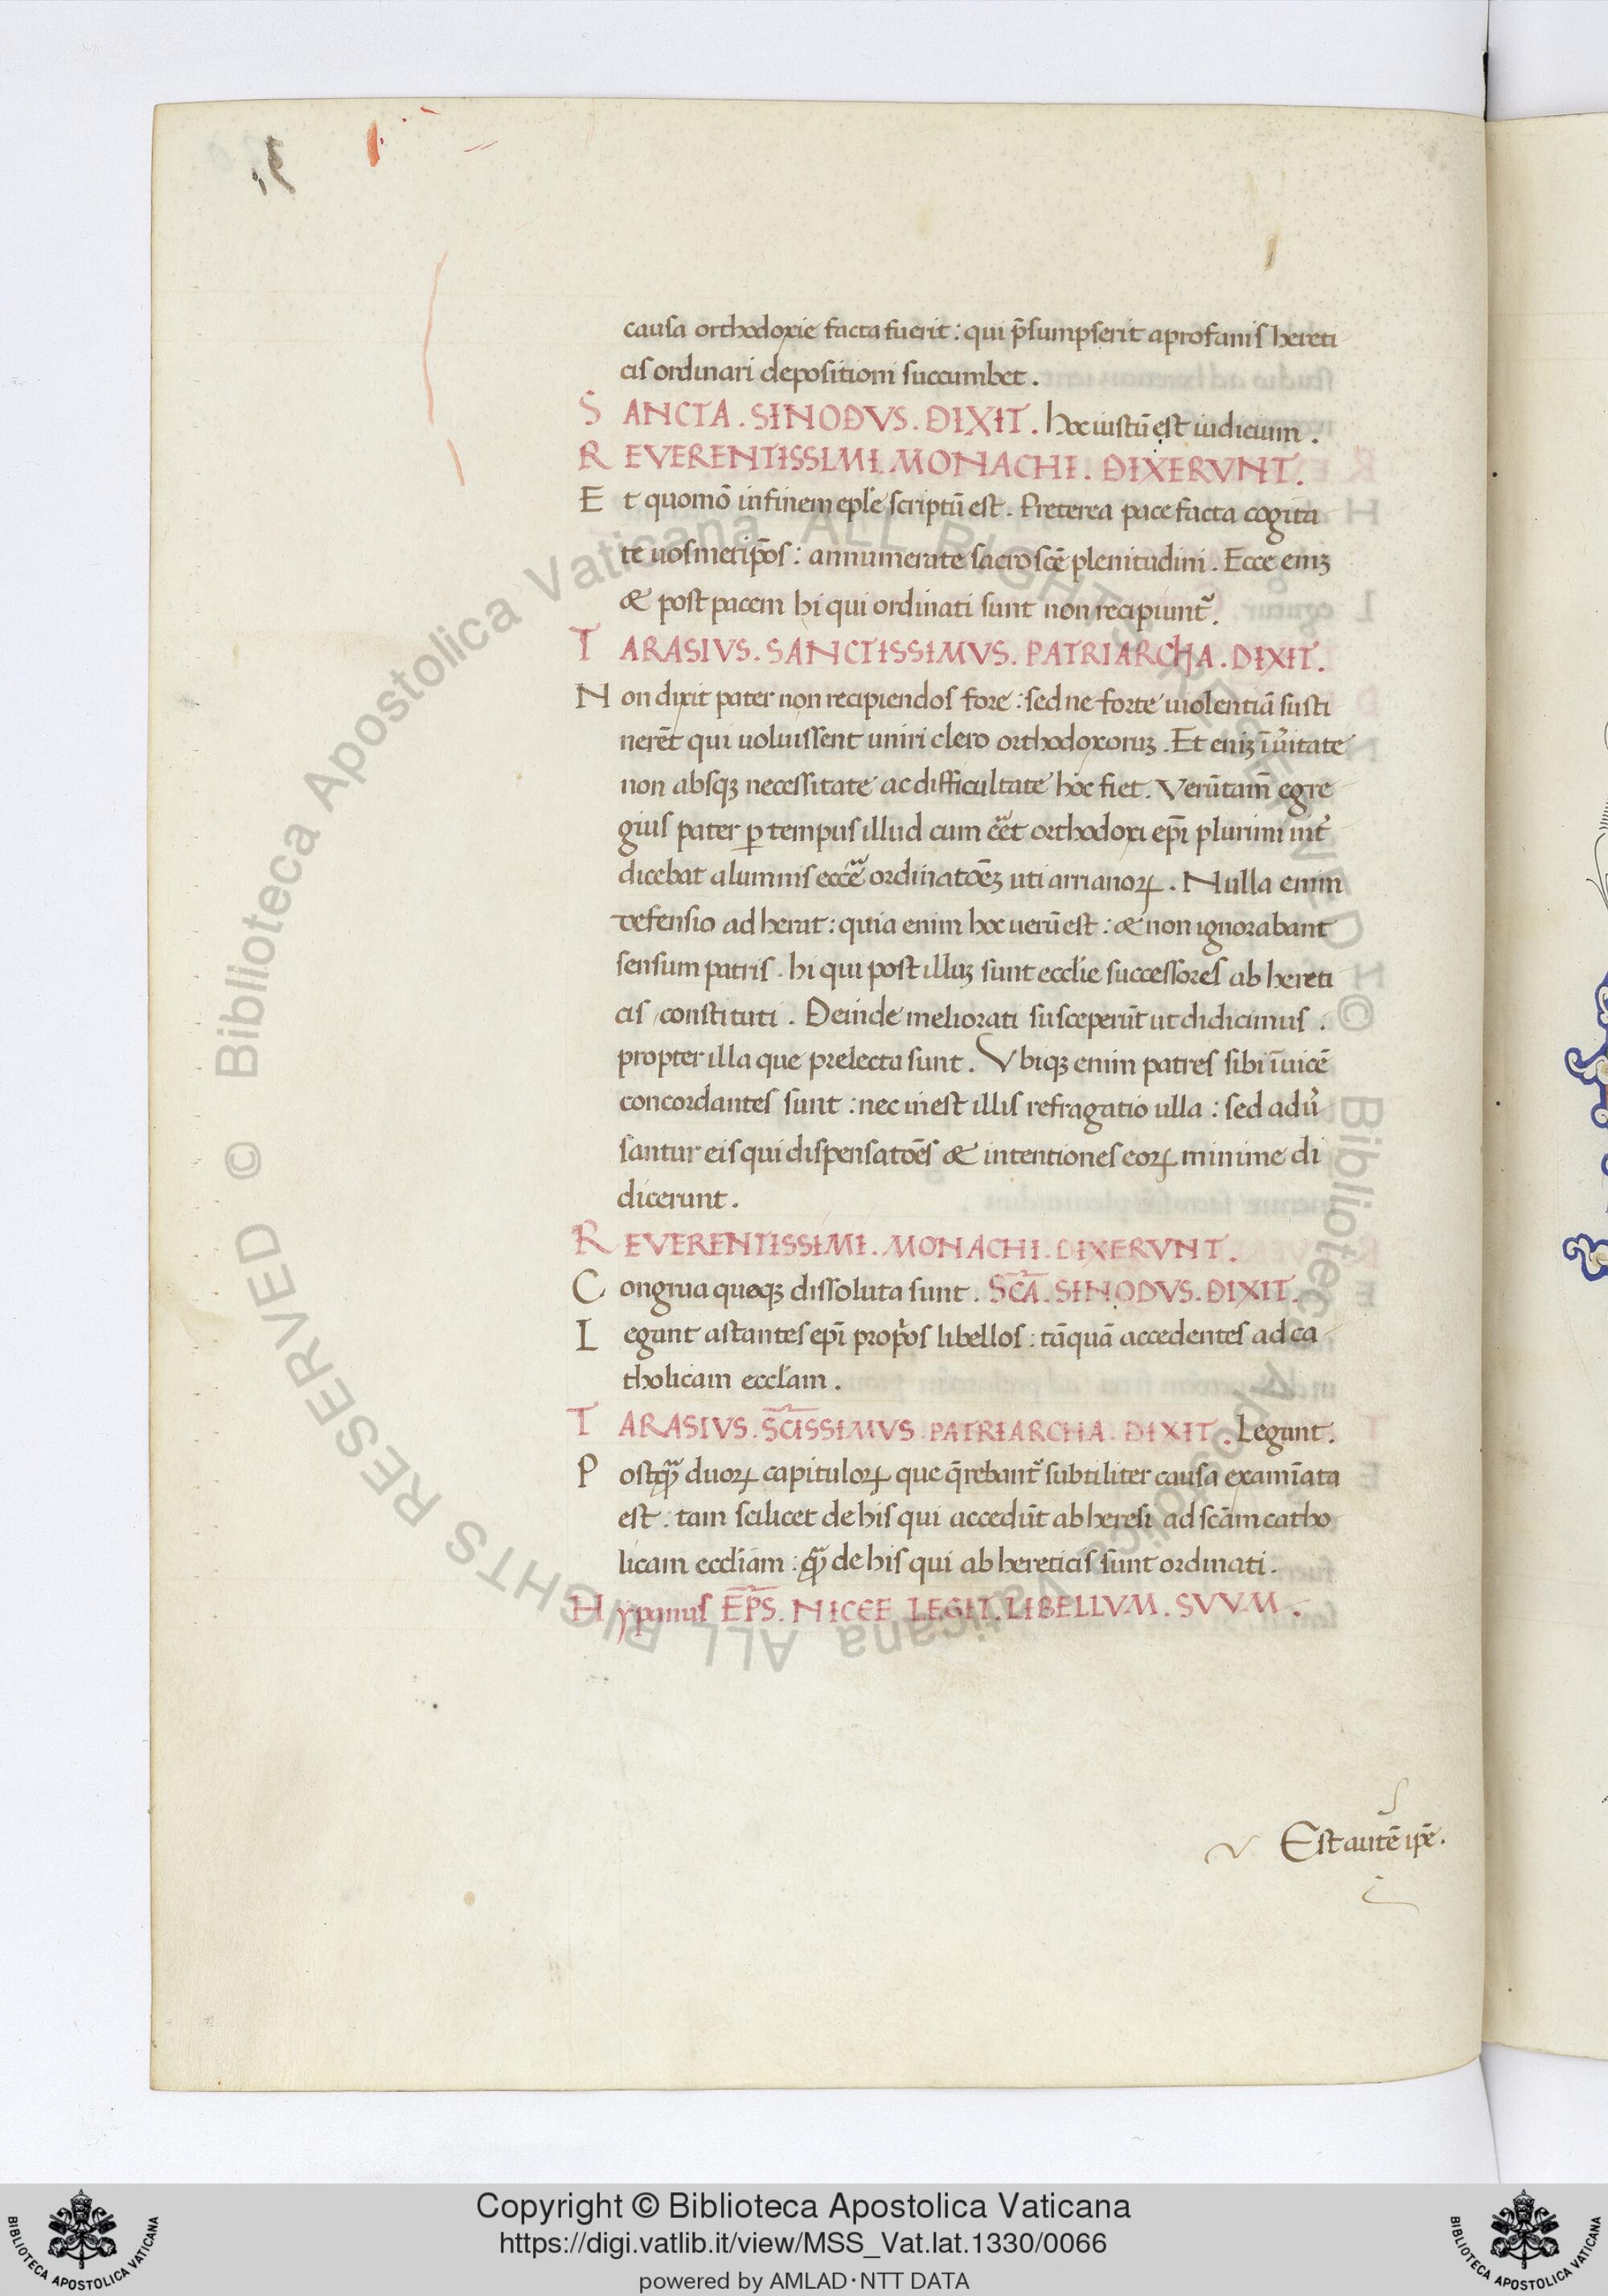 causa orthodoxie facta fuerit : qui p̄sumpserit a profanis hereti
cis ordinari depositioni succumbet .
SANCTA . SINODVS . DIXIT . hoc iustū est iudicium .
REVERENTISSIMI . MONACHI . DIXERVNT .
Et quomō in finem epl̄e scriptū est . Preterea pace facta cogita
te uosmetip̄os : annumerate sacro scē plenitudini . Ecce eniꝫ
& post pacem hi qui ordinati sunt non recipiunt᷑ .
TARASIVS . SANCTISSIMVS . PATRIARCHA . DIXIT .
Non dixit pater non recipiendos fore : sed ne forte uiolentiā susti
nerēt qui uoluissent uniri clero orthodoxoruꝫ . Et eniꝫ ī ue᷑itate
non absqꝫ necessitate ac difficultate hoc fiet . Verūtam̄ egre
gius pater ꝑ tempus illud cum eēt orthodoxi ep̄i plurimi int᷑
dicebat alumnis eccē ordinatōeꝫ uti arrianoꝝ . Nulla enim
defensio ad herat : quia enim hoc uerū est : & non ignorabant
sensum patris . hi qui post illuꝫ sunt eccl̄ie successores ab hereti
cis constituti . Deinde meliorati susceperūt ut didicimus .
propter illa que prelecta sunt . Vbiqꝫ enim patres sibi īuicē
concordantes sunt : nec inest illis refragatio ulla : sed adu᷑
santur eis qui dispensatōes & intentiones eoꝝ minime di
dicerunt .
REVERENTISSIMI . MONACHI . DIXERVNT .
Congrua quoqꝫ dissoluta sunt . SC̄A . SINODVS . DIXIT .
Legant astantes ep̄i prop᷑os libellos : tāquā accedentes ad ca
tholicam eccl̄am .
TARASIVS . SC̄ISSIMVS . PATRIARCHA . DIXIT . Legant .
Postꝙ̄ duoꝝ capituloꝝ que q̄rebant᷑ subtiliter causa examīata
est : tam scilicet de his qui accedūt ab heresi ad scām catho
licam eccl̄iam : ꝙ̄ de his qui ab hereticis sunt ordinati .
Hypanus EP̄S . NICEE LEGIT . LIBELLVM . SVVM .
Est autē ip̄e .
© Biblioteca Apostolica Vaticana ALL RIGHTS RESERVED © Biblioteca Apostolica Vaticana ALL RIGHTS RESERVED
Copyright © Biblioteca Apostolica Vaticana
https://digi.vatlib.it/view/MSS_Vat.lat.1330/0066
powered by AMLAD·NTT DATA
BIBLIOTECA APOSTOLICA VATICANA
BIBLIOTECA APOSTOLICA VATICANA